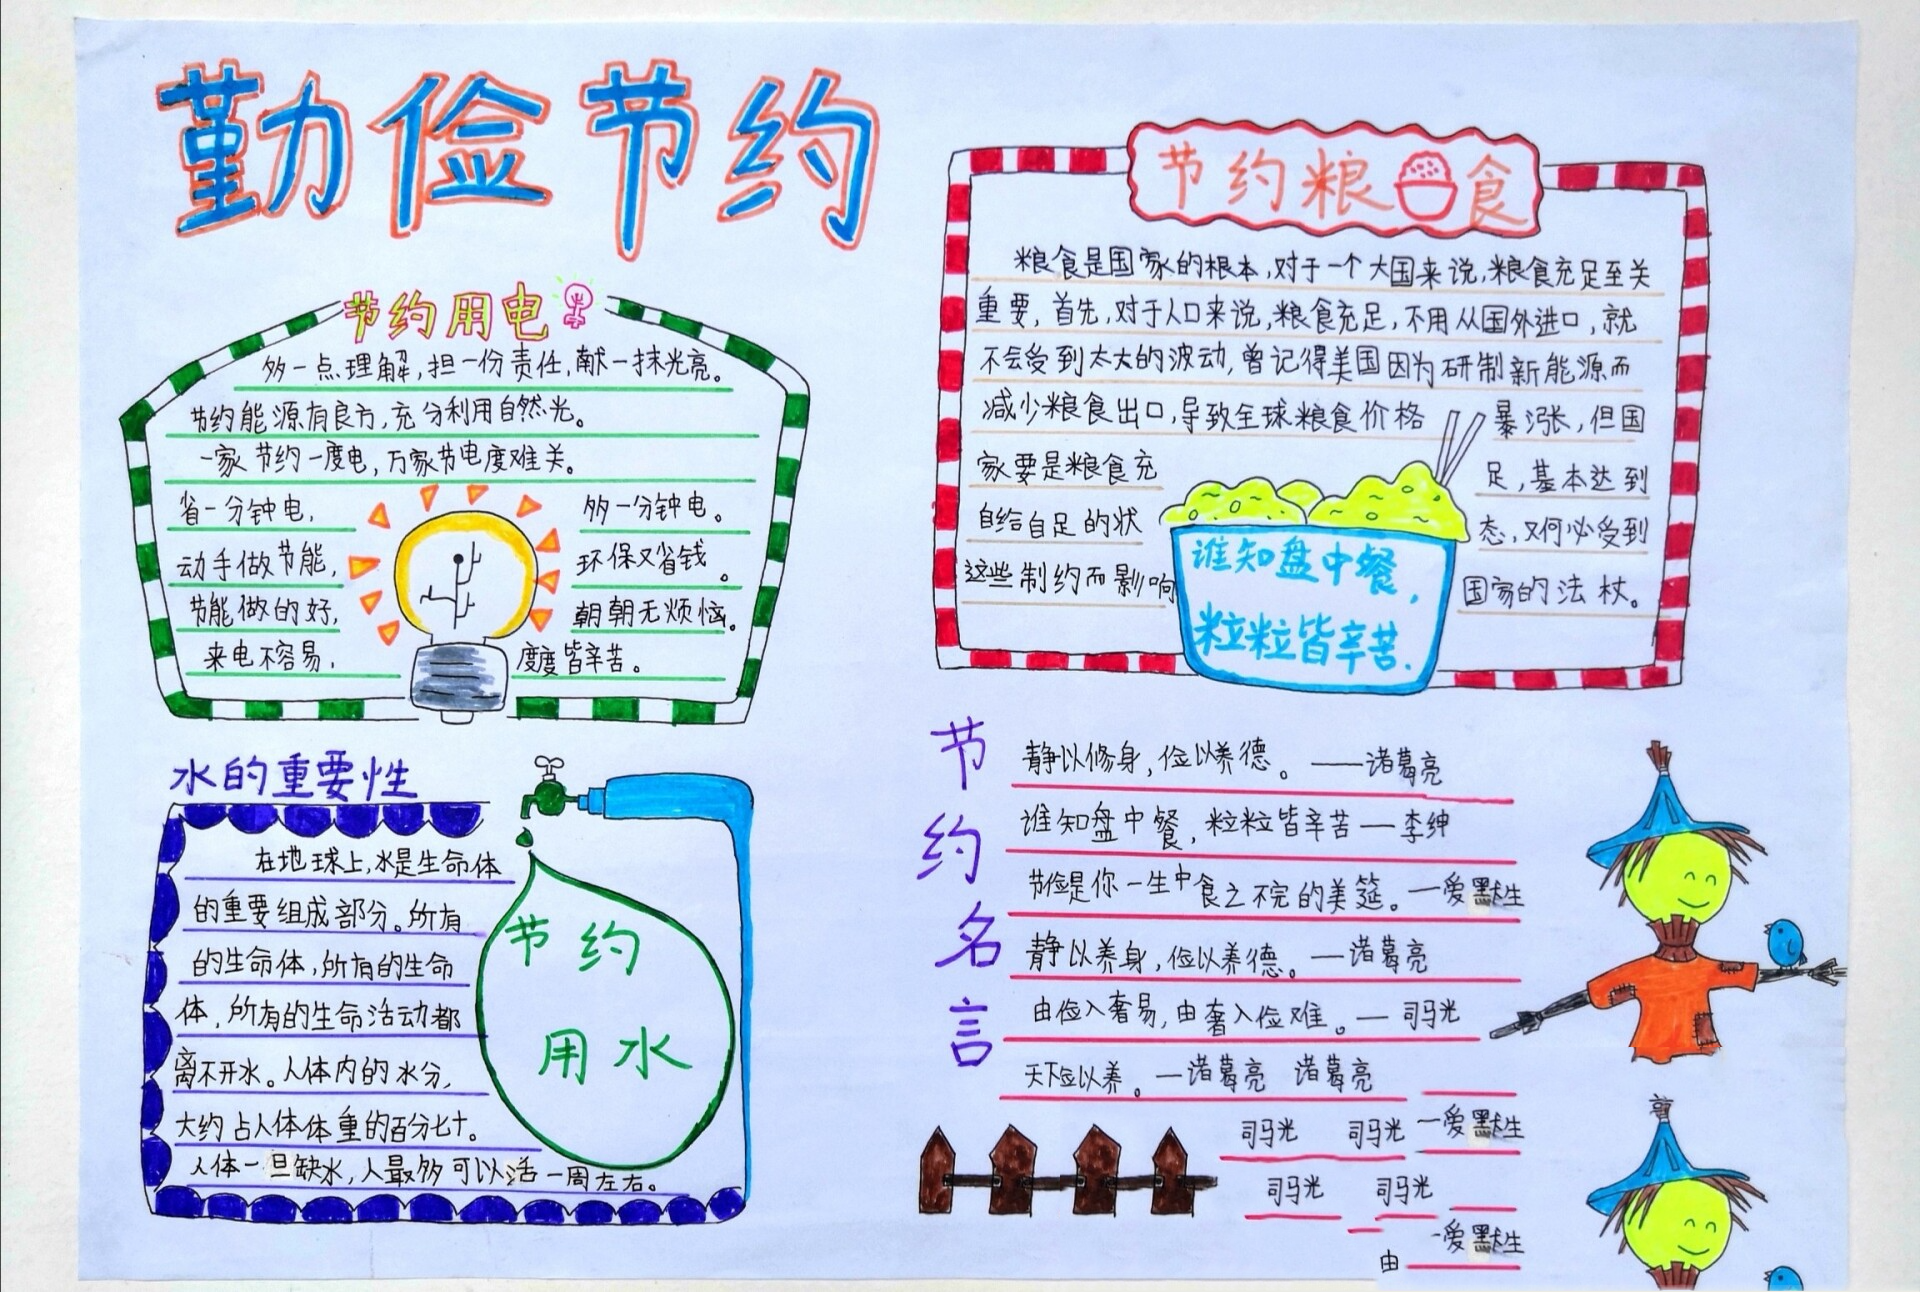 勤俭节约
节约用电
多一点理解,担一份责任,献一抹光亮。
节约能源有良方,充分利用自然光。
一家节约一度电,万家节电度难关。
省一分钟电, 多一分钟电。
动手做节能, 环保又省钱。
节能做的好, 朝朝无烦恼。
来电不容易, 度度皆辛苦。
水的重要性
在地球上,水是生命体
的重要组成部分。所有
的生命体,所有的生命
体,所有的生命活动都
离不开水。人体内的水分,
大约占人体体重的百分七十。
人体一旦缺水,人最多可以活一周左右。
节约
用水
节约粮食
粮食是国家的根本,对于一个大国来说,粮食充足至关
重要,首先,对于人口来说,粮食充足,不用从国外进口,就
不会受到太大的波动,曾记得美国因为研制新能源而
减少粮食出口,导致全球粮食价格 暴涨,但国
家要是粮食充 足,基本达到
自给自足的状 态,又何必受到
这些制约而影响 国家的法杖。
谁知盘中餐,
粒粒皆辛苦.
节约名言
静以修身,俭以养德。——诸葛亮
谁知盘中餐,粒粒皆辛苦—李绅
节俭是你一生中食之不完的美筵。—爱默生
静以养身,俭以养德。—诸葛亮
由俭入奢易,由奢入俭难。—司马光
天下俭以养。—诸葛亮 诸葛亮
司马光 司马光 —爱默生
司马光 司马光
—爱默生
由